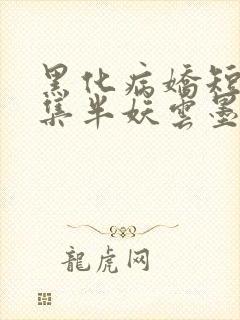 黑化病嬌短
集半妖雲墨
龍虎网